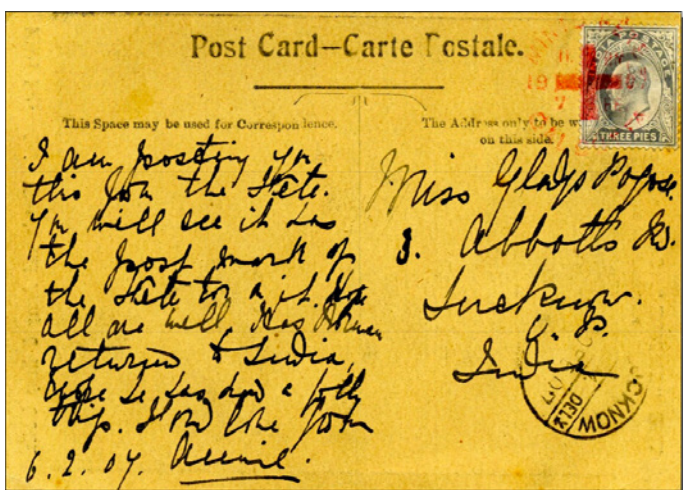 Post Card–Carte Postale.
This Space may be used for Correspondence.
The Address only to be
on this side.
THREE PIES
I am posting you
this from the State.
You will see it has
the post mark of
the State too on it. Hope
all are well. Has
returned to India,
hope he has had a jolly
trip. Fond love from
6.2.07. Annie.
Miss Gladys Pogose.
3. Abbotts Rd.
Lucknow.
U.P.
India
DELY